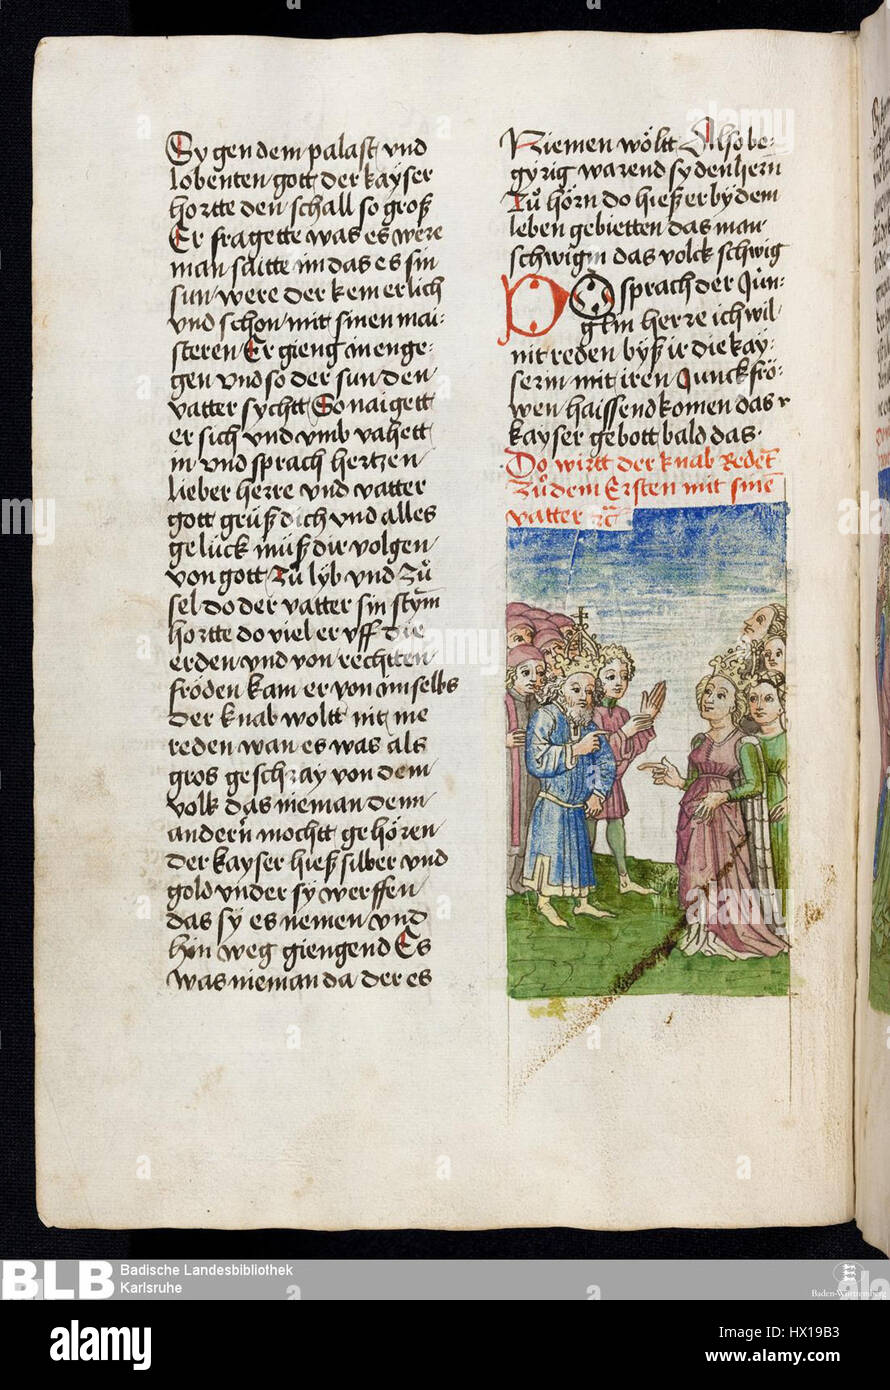 Sy gen dem palast vnd
lobenten gott der kayser
hortte den schall so groß
Er fragette was es were
man saitte im das es sin
sun were der kem erlich
vnd schon mit sinen mai-
steren Er gieng in enge-
gen vnd so der sun den
vatter sychtt So naigett
er sich vnd vmb vahett
in vnd sprach hertzen
lieber herre vnd vatter
gott grüß dich vnd alles
gelück müß dir volgen
von gott zů lyb vnd zů
sel do der vatter sin stym
hortte do viel er vff die
erden vnd von rechtten
fröden kam er von im selbs
der knab woltt nit me
reden wan es was als
gros geschray von dem
volk das nieman denn
andern mochtt gehören
der kayser hieß silber vnd
gold vnder sy werffen
das sy es nemen vnd
hin weg giengend Es
was nieman da der es
Niemen wöltt Also be-
gyrig warend sy den hern
zů hörn do hieß er by dem
leben gebietten das man
schwigin das volck schwig
DO sprach der Jün-
glin herre ich wil
nit reden byß ir die kay-
serin mit iren Junckfrö-
wen haissend komen das
kayser gebott bald das
Do wirtt der knab Redet
zů dem Ersten mit sinem
vatter
BLB
Badische Landesbibliothek
Karlsruhe
Baden-Württemberg
alamy
Image ID: HX19B3
www.alamy.com